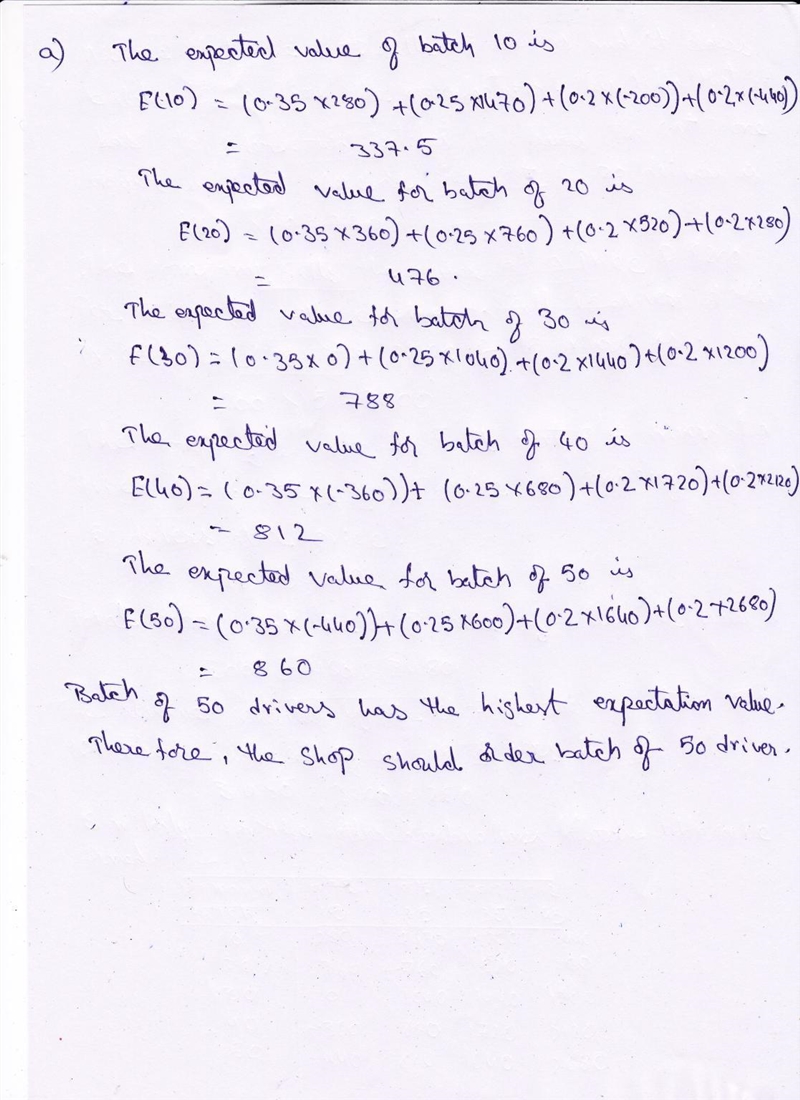 a) The expected value of batch 10 is
E(10) = (0.35 × 280) + (0.25 × 1470) + (0.2 × (-200)) + (0.2 × (-440))
= 337.5
The expected value for batch of 20 is
E(20) = (0.35 × 360) + (0.25 × 760) + (0.2 × 520) + (0.2 × 280)
= 476.
The expected value for batch of 30 is
E(30) = (0.35 × 0) + (0.25 × 1040) + (0.2 × 1440) + (0.2 × 1200)
= 788
The expected value for batch of 40 is
E(40) = (0.35 × (-360)) + (0.25 × 680) + (0.2 × 1720) + (0.2 × 2120)
= 812
The expected value for batch of 50 is
E(50) = (0.35 × (-440)) + (0.25 × 600) + (0.2 × 1640) + (0.2 + 2680)
= 860
Batch of 50 drivers has the highest expectation value.
Therefore, the shop should order batch of 50 driver.